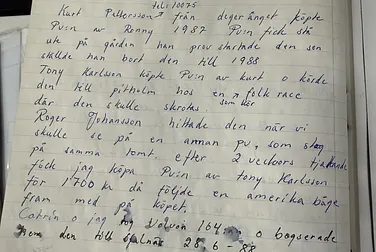 tel: 10075
Kurt Pettersson från degerånget köpte
Pv:n av Ronny 1987 Pv:n fick stå
ute på gården han prov startade den sen
skullde han bort den till 1988
Tony Karlsson köpte Pv:n av kurt o körde
den till pitholm hos en folk race
där den skulle skrotas. som kör
Roger Johansson hittade den när vi
skulle se på en annan pv, som stog
på samma tomt. efter 2 veckors tjatande
fick jag köpa Pv:n av tony Karlsson
för 1700 kr då följde en amerika båge
fram med på köpet.
Catrin o jag tog Volvon 164:an o bogserade
hem den till 25.6-88